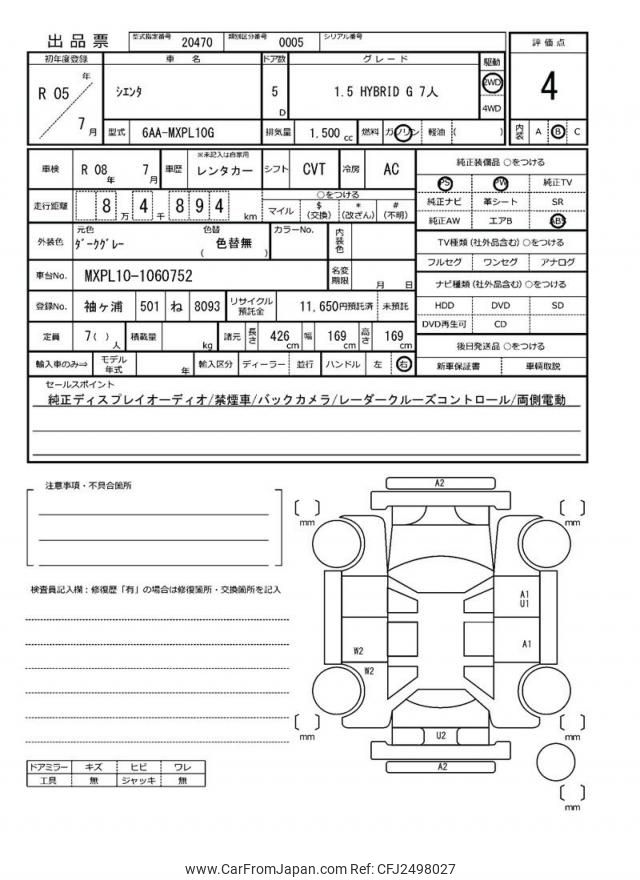 出品票 型式指定番号 20470 類別区分番号 0005 シリアル番号
初年度登録 車 名 ドア数 グレード 駆動 評価点
R 05 年 7 月 シエンタ 5 D 1.5 HYBRID G 7人 2WD 4WD 4
型式 6AA-MXPL10G 排気量 1,500 cc 燃料 ガソリン 軽油 ( ) 内装 A B C
車検 R 08 年 7 月 車歴 ※未記入は自家用 レンタカー シフト CVT 冷房 AC 純正装備品 ○をつける
PS PW 純正TV
走行距離 8 万 4 千 8 9 4 km ○をつける マイル $ (交換) * (改ざん) # (不明)
純正ナビ 革シート SR
純正AW エアB ABS
外装色 元色 ダークグレー 色替 色替無 ( ) カラーNo. 内装色
TV種類 (社外品含む) ○をつける
フルセグ ワンセグ アナログ
車台No. MXPL10-1060752 名変期限 月 日
ナビ種類 (社外品含む) ○をつける
登録No. 袖ヶ浦 501 ね 8093 リサイクル預託金 11,650円預託済 未預託
HDD DVD SD
DVD再生可 CD
定員 7( ) 人 積載量 kg 諸元 長さ 426 cm 幅 169 cm 高さ 169 cm
後日発送品 ○をつける
輸入車のみ⇒ モデル年式 年 輸入区分 ディーラー 並行 ハンドル 左 右
新車保証書 車輌取説
セールスポイント
純正ディスプレイオーディオ/禁煙車/バックカメラ/レーダークルーズコントロール/両側電動
注意事項・不具合箇所
検査員記入欄：修復歴「有」の場合は修復箇所・交換箇所を記入
A2
mm
mm
A1
U1
A1
W2
W2
mm
mm
U2
A2
mm
ドアミラー キズ ヒビ ワレ
工具 無 ジャッキ 無
www.CarFromJapan.com Ref: CFJ2498027